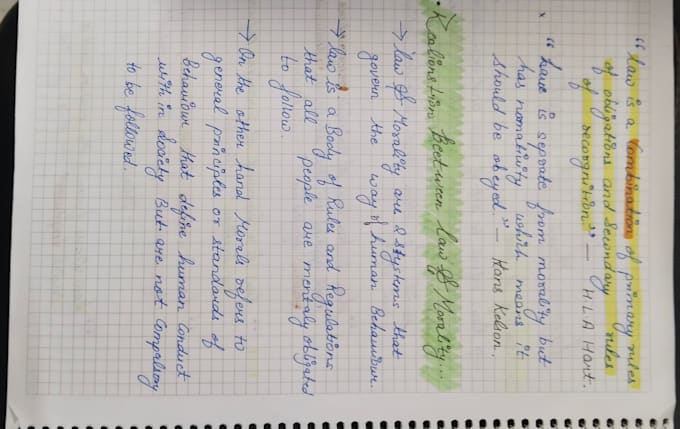 "Law is a Combination of primary rules
of obligations and Secondary rules
of recognition" — H.L.A Hart.
"Law is seprate from morality but
has nomativity which means it
should be obeyed" — Hans Kelson.
Realtionstion Beetween Law & Morality...
→ Law & Morality are 2 Stystems that
govern the way of human Behaviour.
→ Law is a Body of Rules and Regulations
that all people are mentaly obligated
to follow.
→ On the other hand Morals refers to
general principles or standards of
Behaviour that define human Conduct
with in Society But are not Compalsory
to be followed.